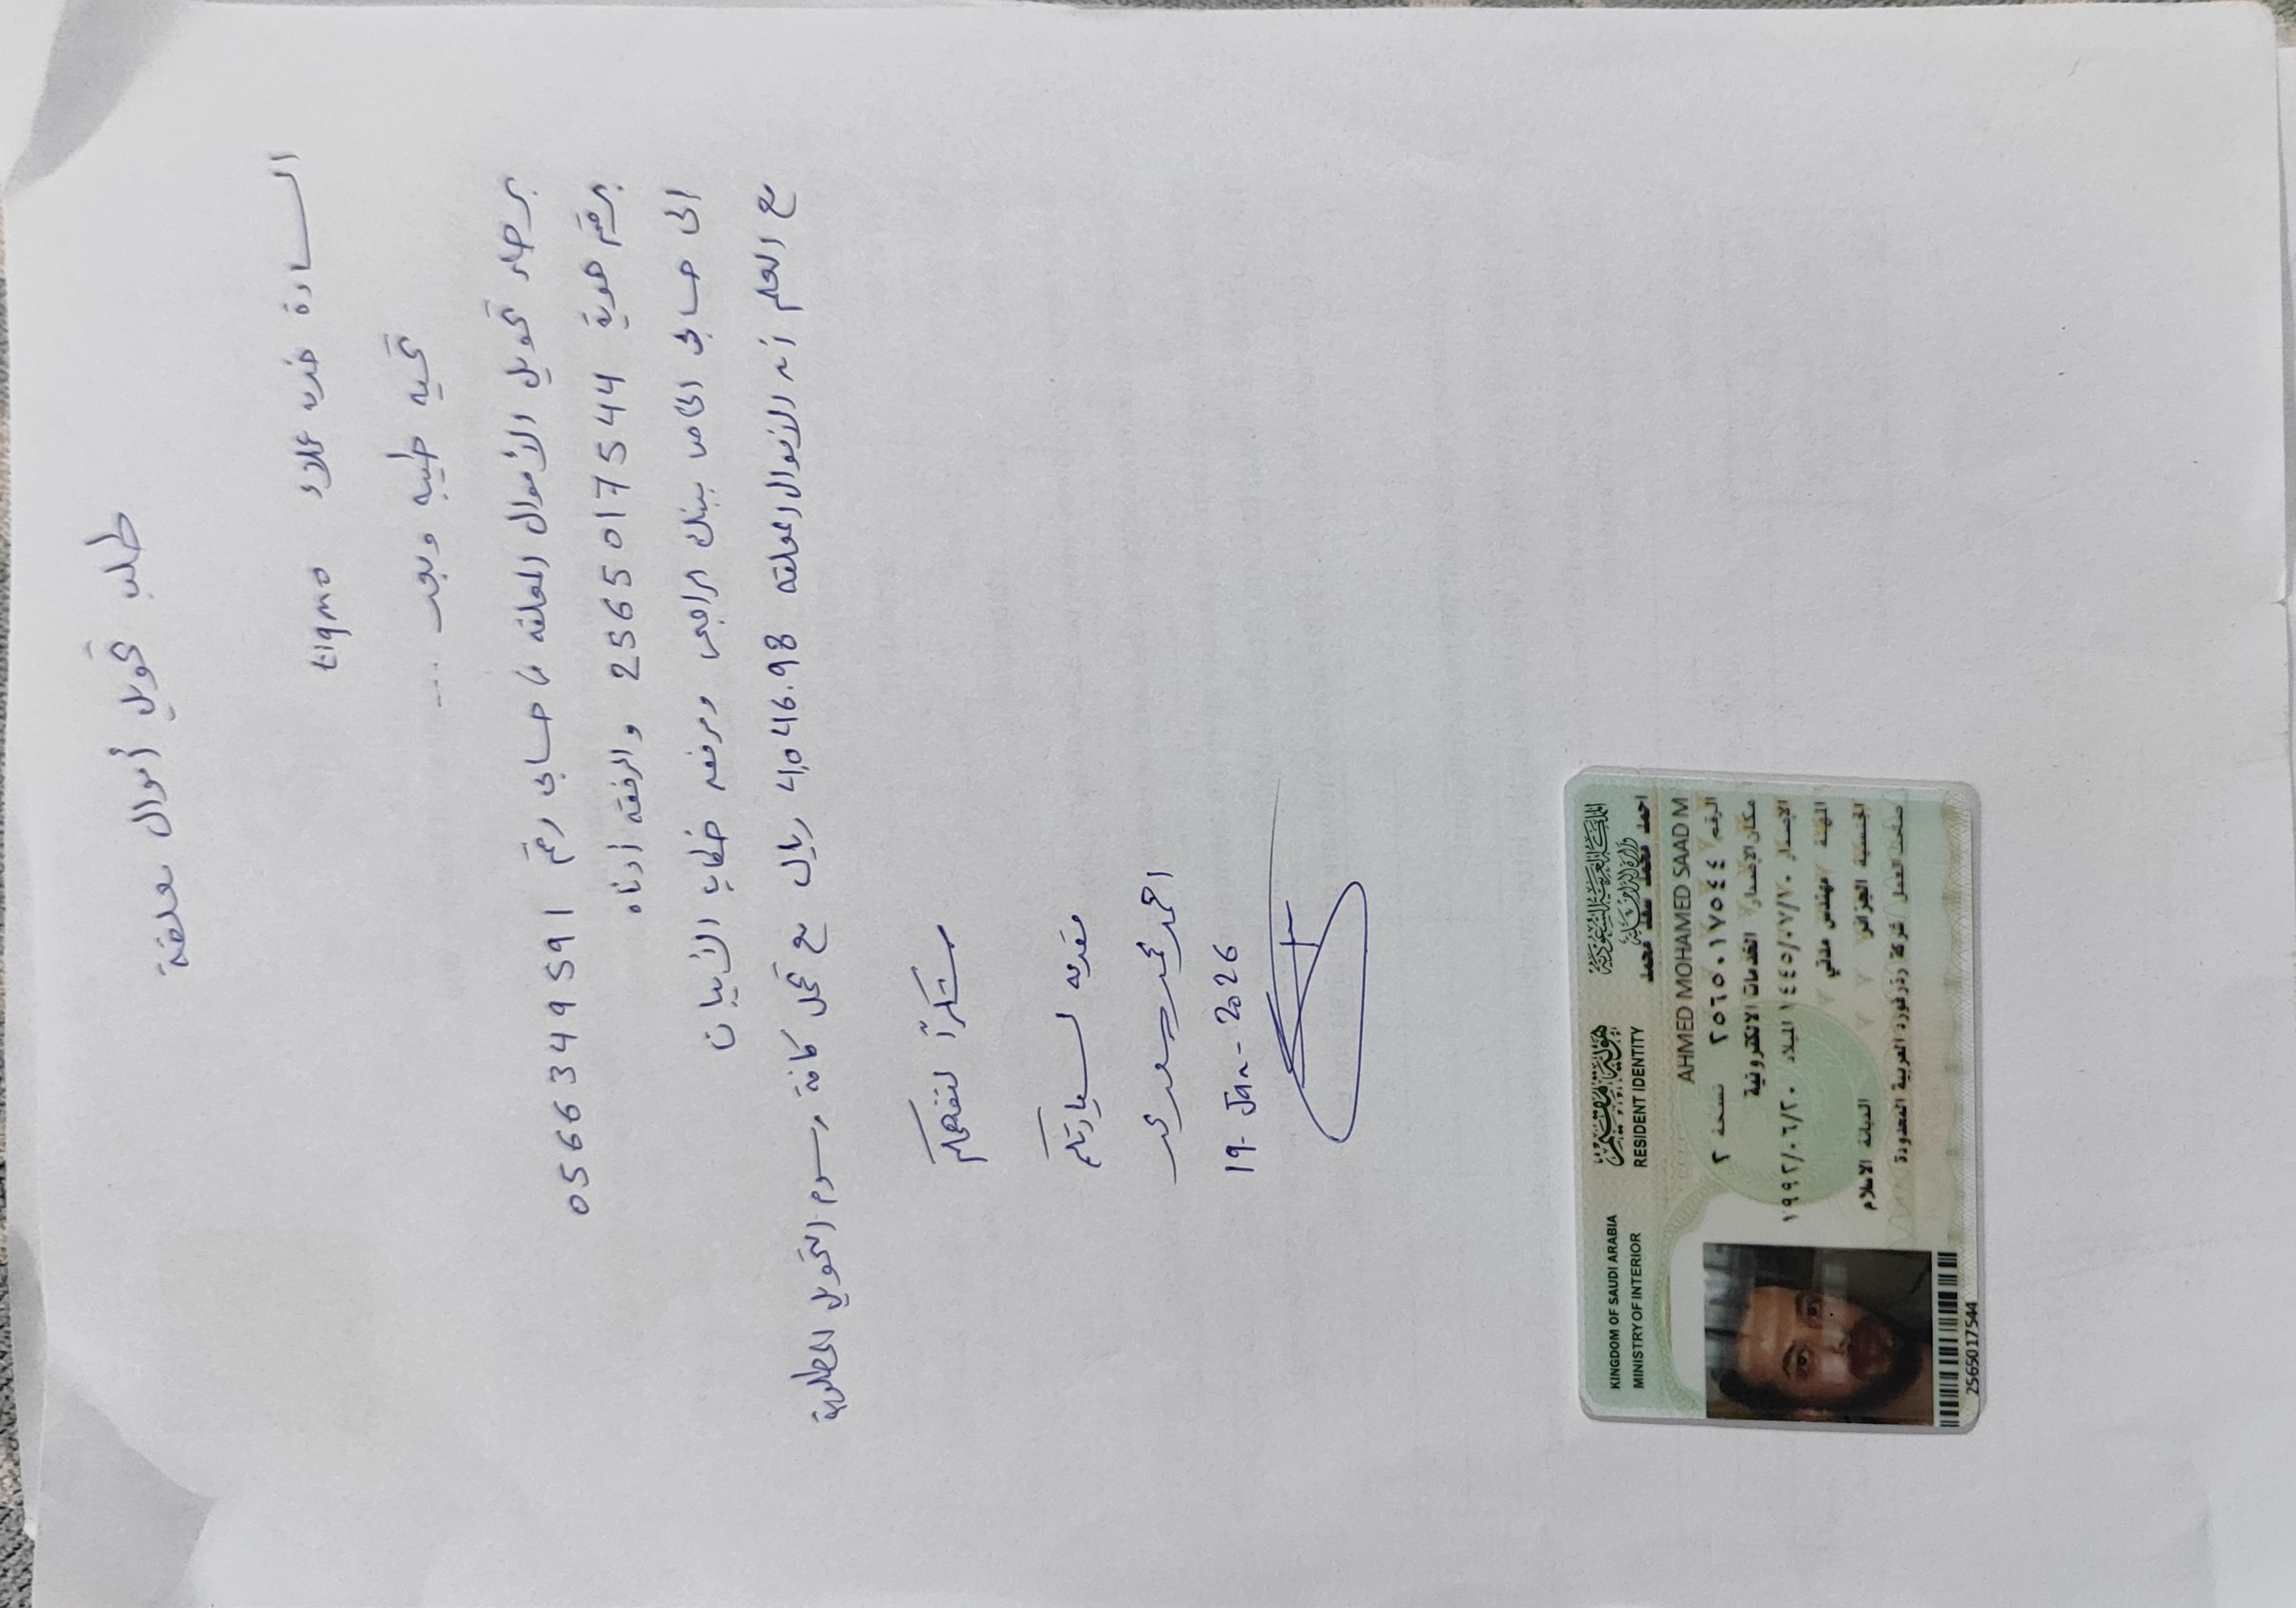 طلب تحويل أموال معلقة
السادة خدمة عملاء tiqmo
تحيه طيبه وبعد ...
برجاء تحويل الأموال المعلقه فى حسابى رقم 0566349591
برقم هوية 2565017544 والمرفقه أدناه
الى حسابى الخاص ببنك الراجحى ومرفقه خطاب الأيبان
مع العلم أنه الأموال المعلقه 4,046.98 ريال مع تحمل كافة رسوم التحويل المطلوبة
شكراً لتفهمكم
مقدمه لسيادتكم
احمد محمد سعد محمد
19-Jan-2026
KINGDOM OF SAUDI ARABIA هوية مقيم المملكة العربية السعودية
MINISTRY OF INTERIOR RESIDENT IDENTITY وزارة الداخلية
احمد محمد سعد محمد
AHMED MOHAMED SAAD M
الرقم ٢٥٦٥٠١٧٥٤٤ نسخة ٢
مكان الإصدار الخدمات الالكترونية
الإصدار ١٤٤٥/٠٧/٢٠ الميلاد ١٩٩٢/٠٦/٢٠
المهنة مهندس مدني
الجنسية الديانة الاسلام
صاحب العمل شركة العربية المحدودة
2565017544